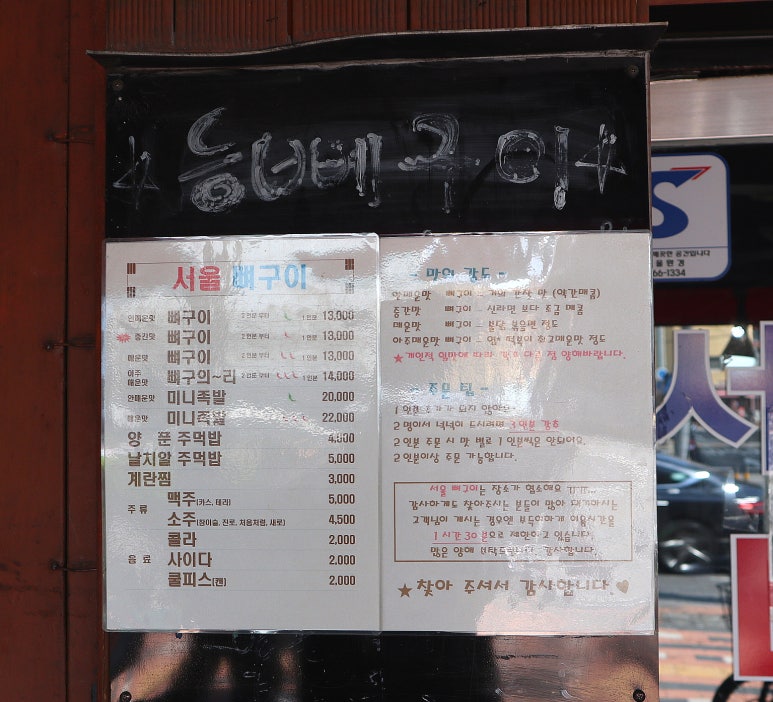 서울 뼈구이
안매운맛 뼈구이 2인분 부터 1인분 13,000
중간맛 뼈구이 2인분 부터 1인분 13,000
매운맛 뼈구이 2인분 부터 1인분 13,000
아주 매운맛 뼈구의~리 2인분 부터 1인분 14,000
안매운맛 미니족발 20,000
매운맛 미니족발 22,000
양 푼 주먹밥 4,000
날치알 주먹밥 5,000
계란찜 3,000
주 류 맥주(카스, 테라) 5,000
소주(참이슬, 진로, 처음처럼, 새로) 4,500
음 료 콜라 2,000
사이다 2,000
쿨피스(캔) 2,000
- 맛의 강도 -
안매운맛 뼈구이 - 간장 맛 (약간매콤)
중간맛 뼈구이 - 신라면 보다 조금 매콤
매운맛 뼈구이 - 불닭 볶음면 정도
아주매운맛 뼈구이 - 떡볶이 최고매운맛 정도
★개인적 입맛에 따라 점 양해바랍니다.
- 주문 팁 -
1인분 추가가 되지 않아요
2명이서 넉넉히 드시려면 3인분 강추
2인분 주문 시 맛 별로 1인분씩은 안되어요.
2인분이상 주문 가능합니다.
서울 뼈구이는 장소가 협소해요
감사하게도 찾아주시는 분들이 많아 대기하시는
고객님이 계시는 경우엔 부득이하게 이용시간을
1시간 30분으로 제한하고 있습니다.
많은 양해 부탁드립니다. 감사합니다.
★찾아 주셔서 감사합니다.♥
S
66-1334